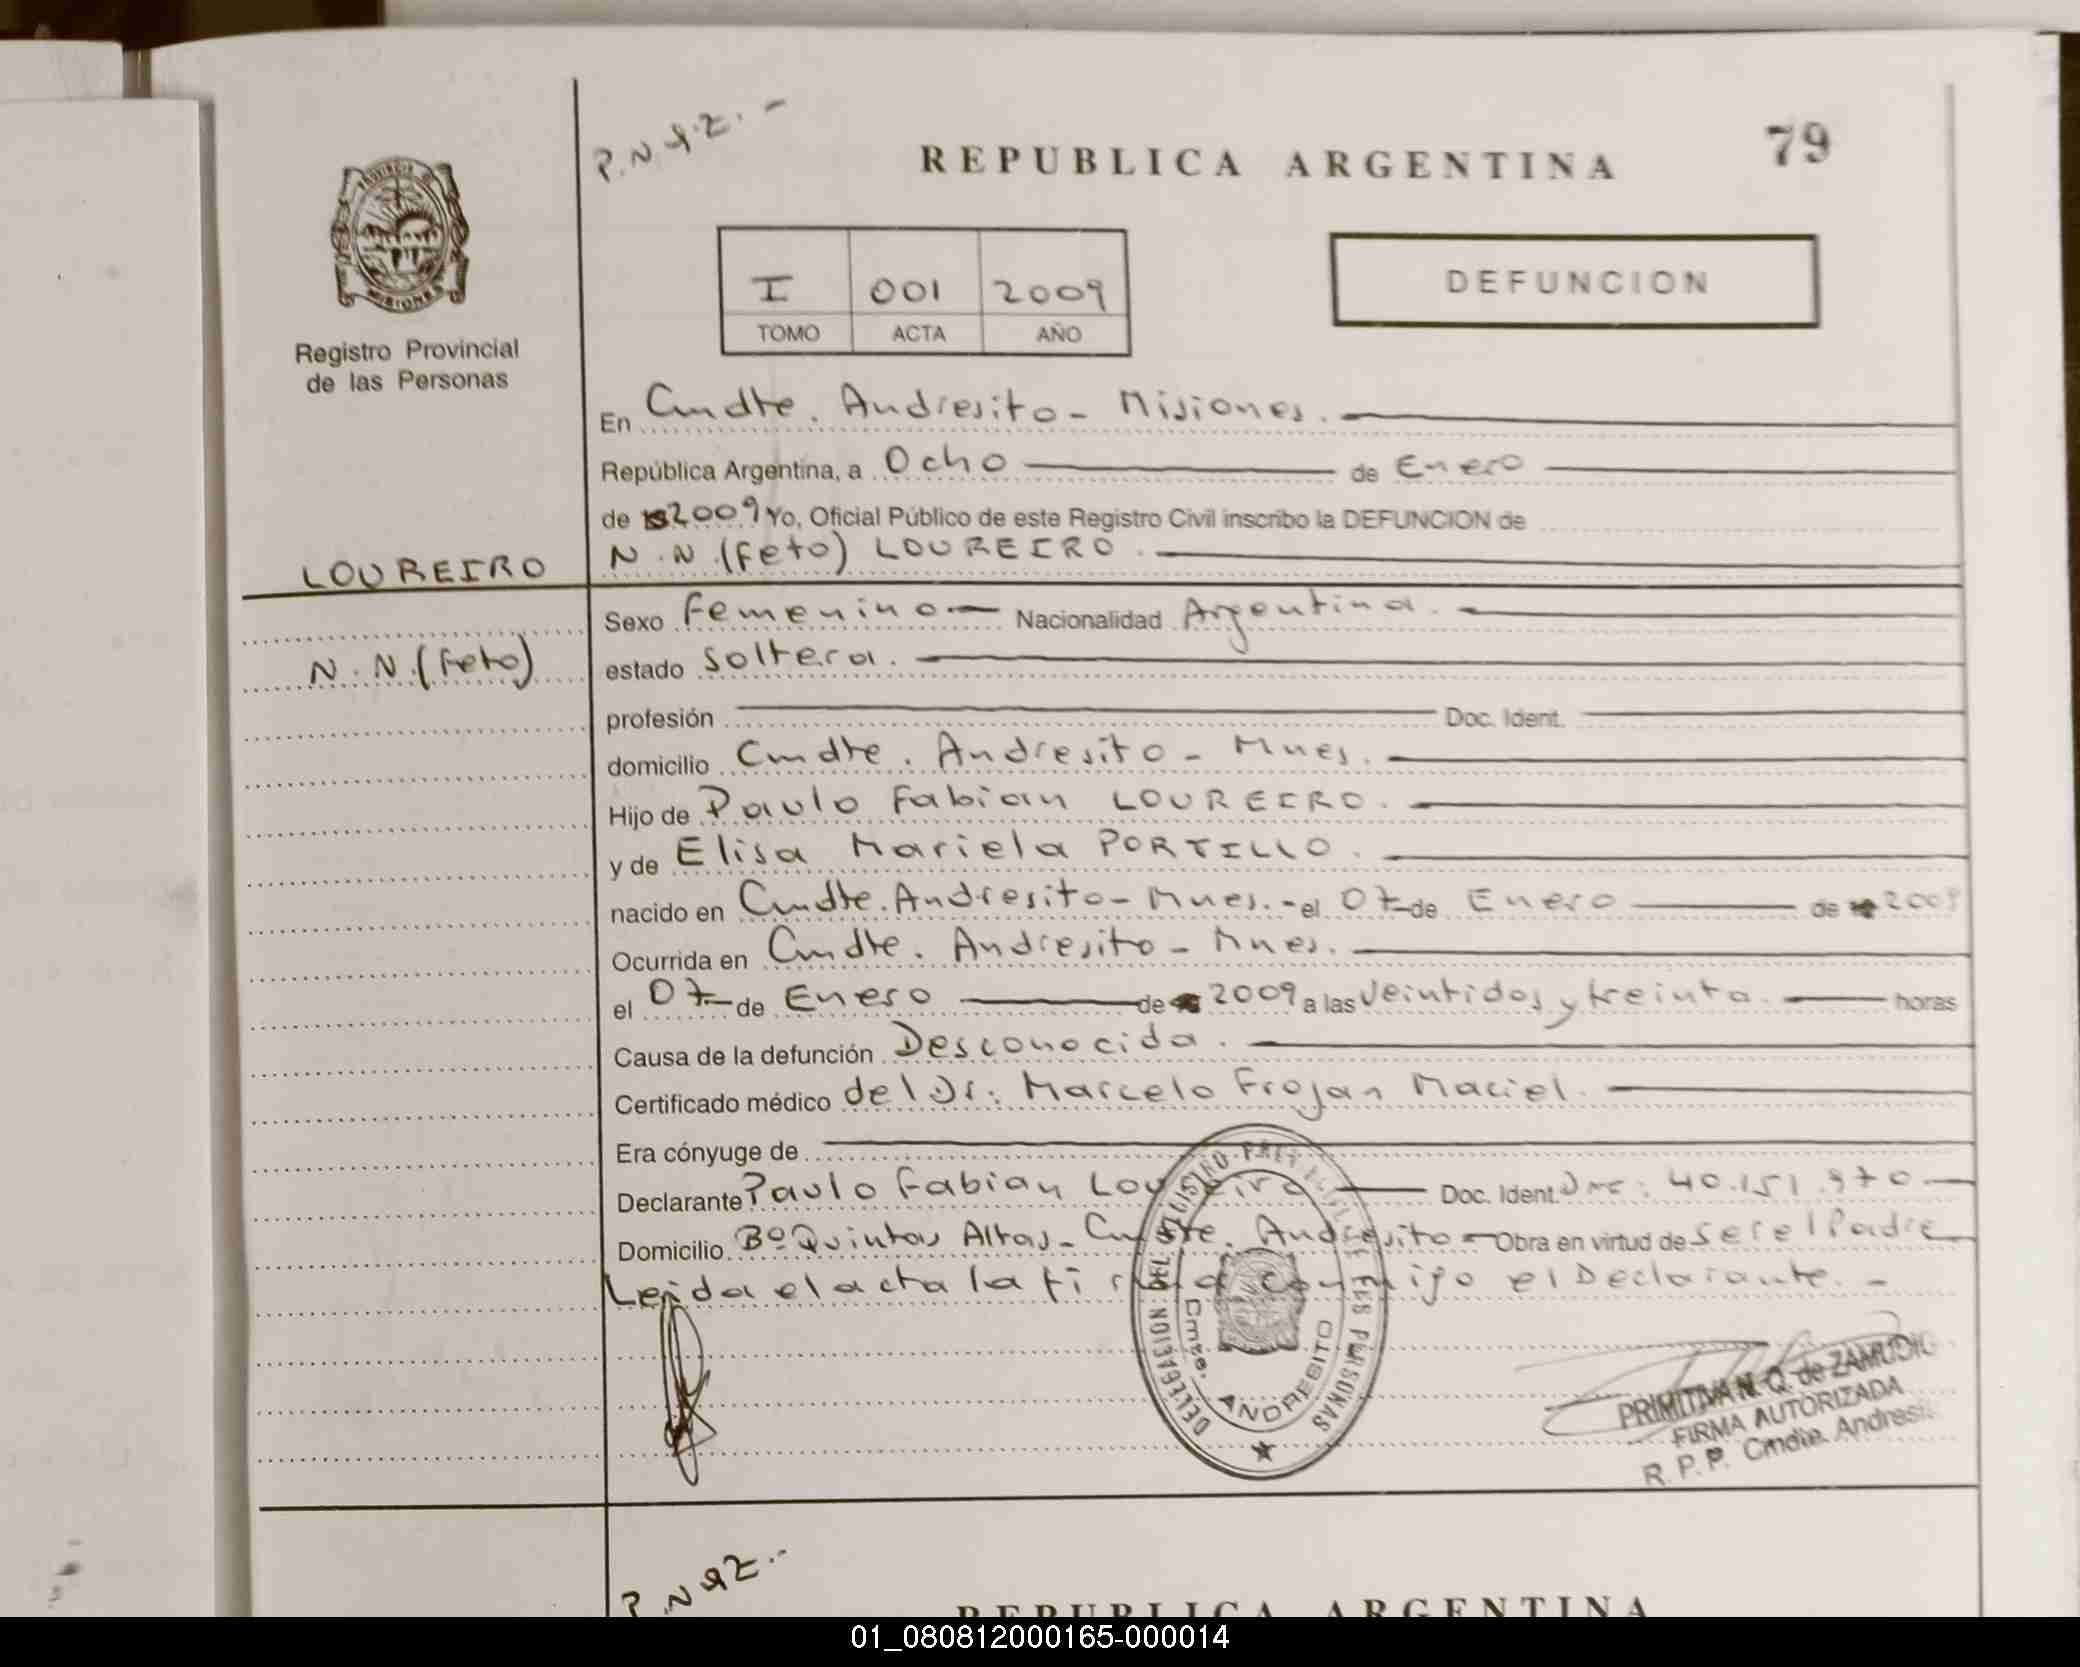 P.N.Q.Z.-
REPUBLICA ARGENTINA
79
PROVINCIA DE
MISIONES
Registro Provincial
de las Personas
I 001 2009
TOMO ACTA AÑO
DEFUNCION
En Cmdte. Andresito - Misiones.
República Argentina, a Ocho de Enero
de 2009 Yo, Oficial Público de este Registro Civil inscribo la DEFUNCION de
N.N.(Feto) LOUREIRO.
LOUREIRO
N.N.(Feto)
Sexo Femenino Nacionalidad Argentina.
estado Soltera.
profesión Doc. Ident.
domicilio Cmdte. Andresito - Mnes.
Hijo de Paulo Fabian LOUREIRO.
y de Elisa Mariela PORTILLO.
nacido en Cmdte. Andresito - Mnes. - el 07 de Enero de 2009
Ocurrida en Cmdte. Andresito - Mnes.
el 07 de Enero de 2009 a las Veintidos y treinta. horas
Causa de la defunción Desconocida.
Certificado médico del Dr: Marcelo Frojan Maciel.
Era cónyuge de
Declarante Paulo Fabian Loureiro Doc. Ident. 40.151.970
Domicilio Bº Quintas Altas - Cmdte. Andresito - Obra en virtud de Ser el Padre
Leida el acta la firma conmigo el Declarante. -
DELEGACION DEL REGISTRO DE LAS PERSONAS
Cmte. ANDRESITO
PRIMITIVA N. Q. de ZAMUDIO
FIRMA AUTORIZADA
R. P. P. Cmdte. Andresito
REPUBLICA ARGENTINA
01_080812000165-000014